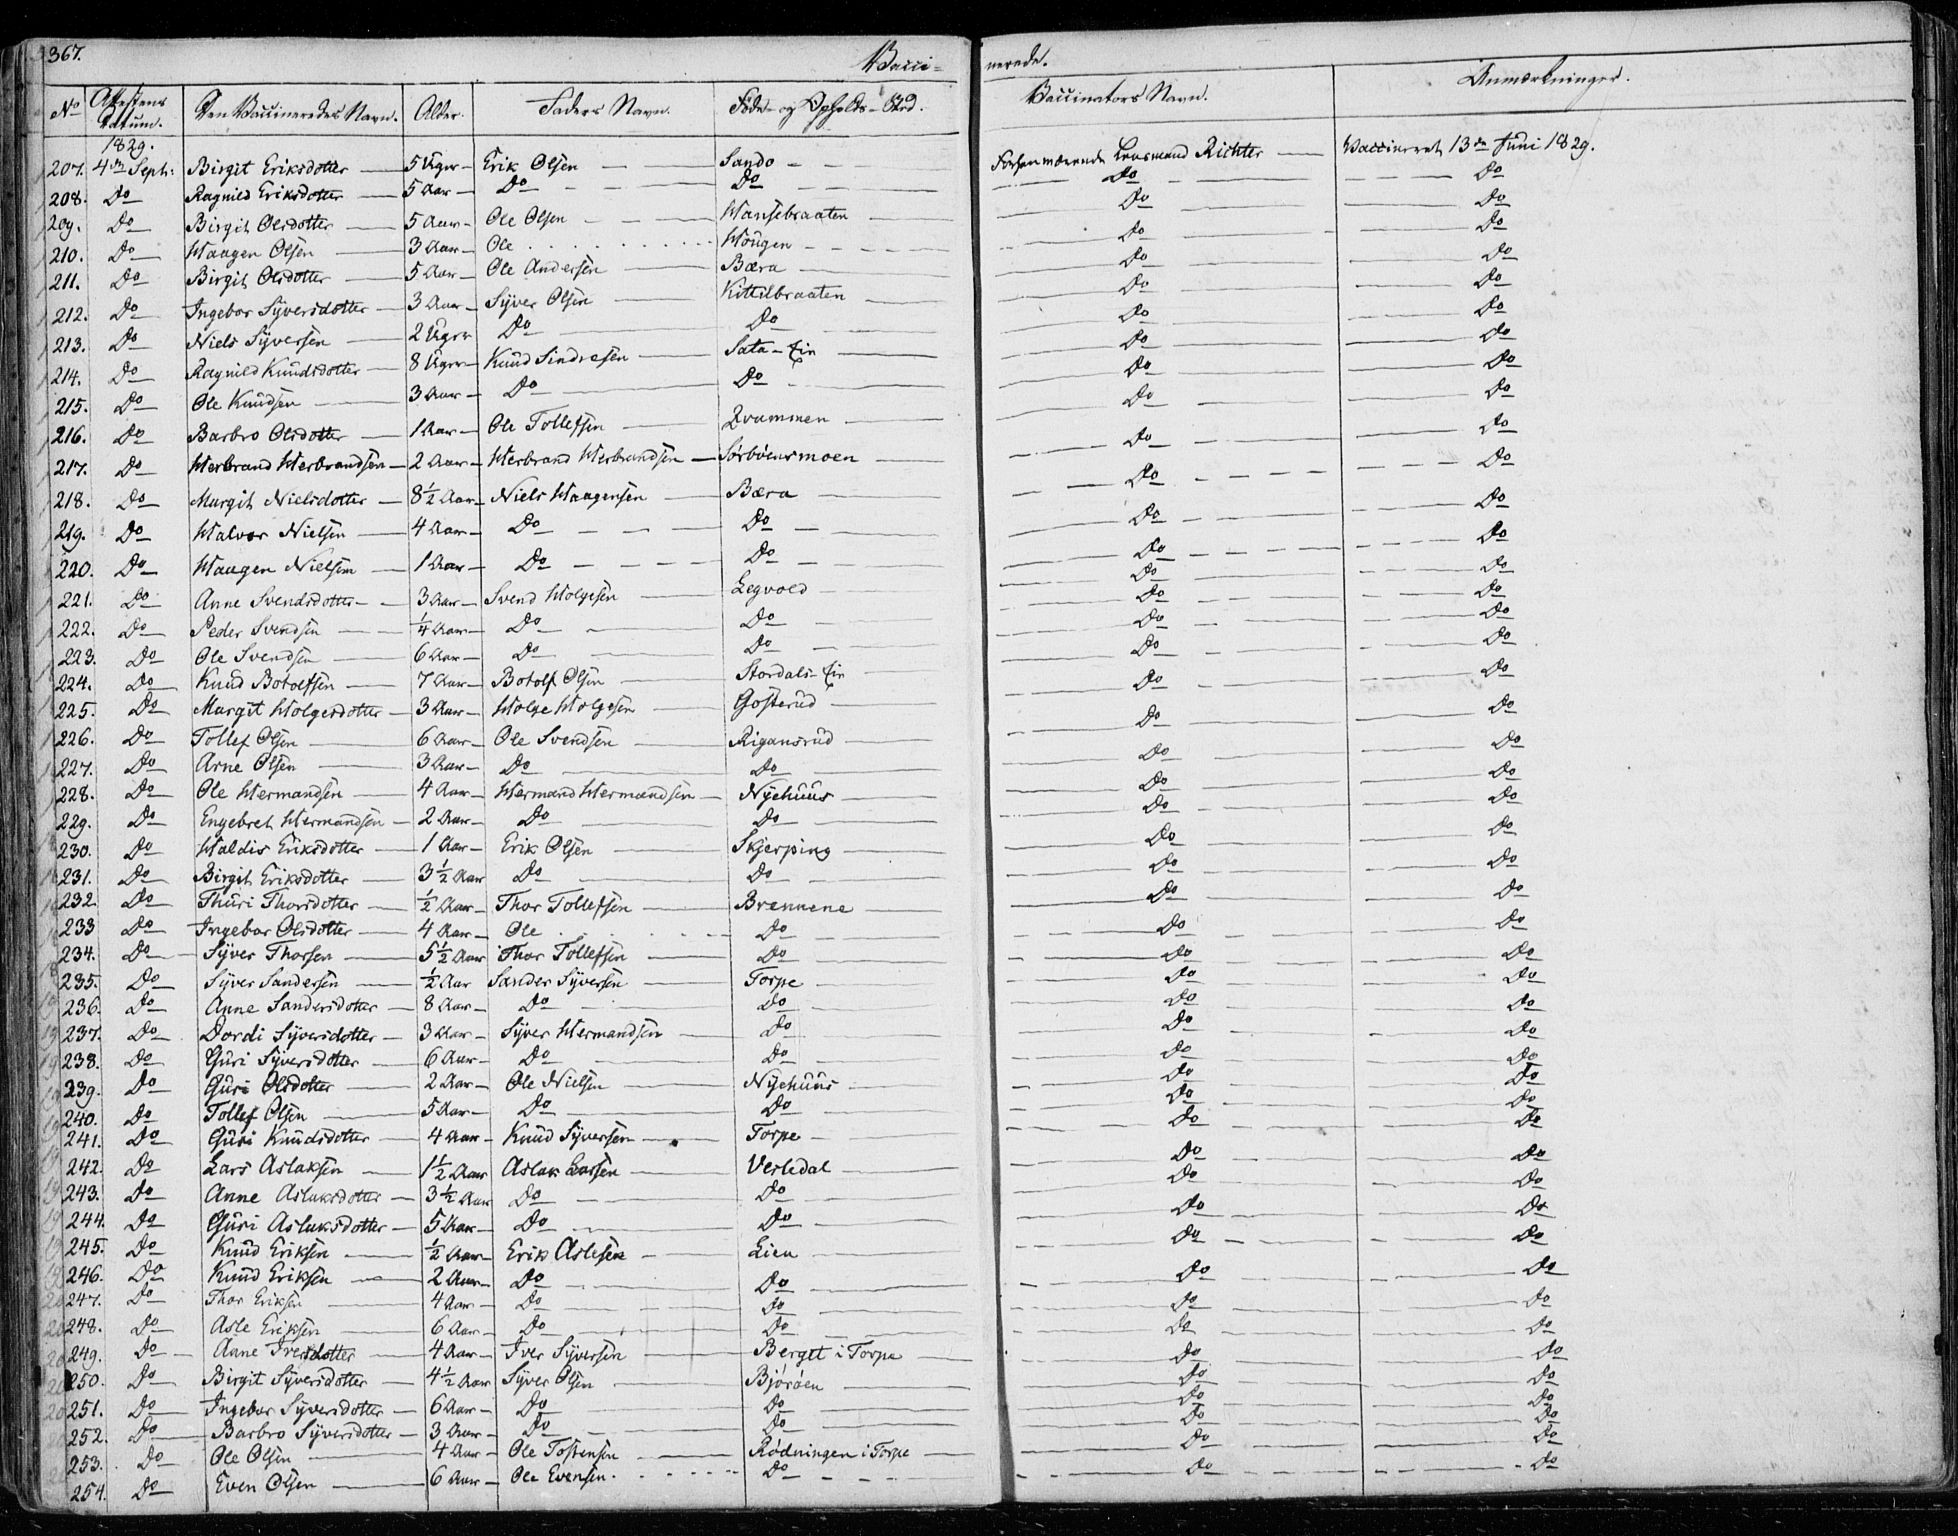 367. Vacci- nerede.
No Attestens Datum. Den Vaccineredes Navn. Alder. Faders Navn. Føde- og Opholds-Sted. Vaccinators Navn. Anmærkninger.
1829.
207. 4de Septr: Birgit Eriksdotter 5 Uger Erik Olsen Sando Forhenværende Lensmand Richter Vaccineret 13de Juni 1829.
208. Do Ragnild Eriksdotter 5 Aar Do Do Do Do
209. Do Birgit Olsdotter 5 Aar Ole Olsen Hansebraaten Do Do
210. Do Haagen Olsen 3 Aar Ole . . . Hougen Do Do
211. Do Birgit Olsdotter 5 Aar Ole Andersen Bæra Do Do
212. Do Ingebor Syversdotter 3 Aar Syver Olsen Kittilbraaten Do Do
213. Do Niels Syversen 2 Uger Do Do Do Do
214. Do Ragnild Knudsdotter 8 Uger Knud Sindresen Sata-Ein Do Do
215. Do Ole Knudsen 3 Aar Do Do Do Do
216. Do Barbro Olsdotter 1 Aar Ole Tollefsen Qvammen Do Do
217. Do Herbrand Herbrandsen 2 Aar Herbrand Herbrandsen Sørbøensmoen Do Do
218. Do Margit Nielsdotter 8½ Aar Niels Haagensen Bæra Do Do
219. Do Halvor Nielsen 4 Aar Do Do Do Do
220. Do Haagen Nielsen 1 Aar Do Do Do Do
221. Do Anne Svendsdotter 3 Aar Svend Holgesen Legvold Do Do
222. Do Peder Svendsen ¼ Aar Do Do Do Do
223. Do Ole Svendsen 6 Aar Do Do Do Do
224. Do Knud Botolfsen 7 Aar Botolf Olsen Stordals-Ein Do Do
225. Do Margit Holgesdotter 3 Aar Holge Holgesen Gosterud Do Do
226. Do Tollef Olsen 6 Aar Ole Svendsen Rigansrud Do Do
227. Do Arne Olsen 3 Aar Do Do Do Do
228. Do Ole Hermandsen 4 Aar Hermand Hermandsen Nyehuus Do Do
229. Do Engebret Hermandsen 2 Aar Do Do Do Do
230. Do Haldis Eriksdotter 1 Aar Erik Olsen Skjerping Do Do
231. Do Birgit Eriksdotter 3½ Aar Do Do Do Do
232. Do Thuri Thorsdotter ½ Aar Thor Tollefsen Brennene Do Do
233 Do Ingebor Olsdotter 4 Aar Ole . . . Do Do Do
234. Do Syver Thorsen 5½ Aar Thor Tollefsen Do Do Do
235. Do Syver Sandersen ½ Aar Sander Syversen Torpe Do Do
236. Do Anne Sandersdotter 8 Aar Do Do Do Do
237. Do Dordi Syversdotter 3 Aar Syver Hermandsen Do Do Do
238. Do Guri Syversdotter 6 Aar Do Do Do Do
239. Do Guri Olsdotter 2 Aar Ole Nielsen Nyehuus Do Do
240. Do Tollef Olsen 5 Aar Do Do Do Do
241. Do Guri Knudsdotter 4 Aar Knud Syversen Torpe Do Do
242. Do Lars Aslaksen 1½ Aar Aslak Larsen Vesledal Do Do
243. Do Anne Aslaksdotter 3½ Aar Do Do Do Do
244. Do Guri Aslaksdotter 5 Aar Do Do Do Do
245. Do Knud Eriksen ½ Aar Erik Aslesen Lien Do Do
246. Do Knud Eriksen 2 Aar Do Do Do Do
247. Do Thor Eriksen 4 Aar Do Do Do Do
248. Do Asle Eriksen 6 Aar Do Do Do Do
249. Do Anne Iversdotter 4 Aar Iver Syversen Berget i Torpe Do Do
250. Do Birgit Syversdotter 4½ Aar Syver Olsen Bjøröen Do Do
251. Do Ingebor Syversdotter 6 Aar Do Do Do Do
252. Do Barbro Syversdotter 3 Aar Do Do Do Do
253. Do Ole Olsen 4 Aar Ole Tostensen Rødningen i Torpe Do Do
254. Do Even Olsen 6 Aar Ole Evensen Do Do Do